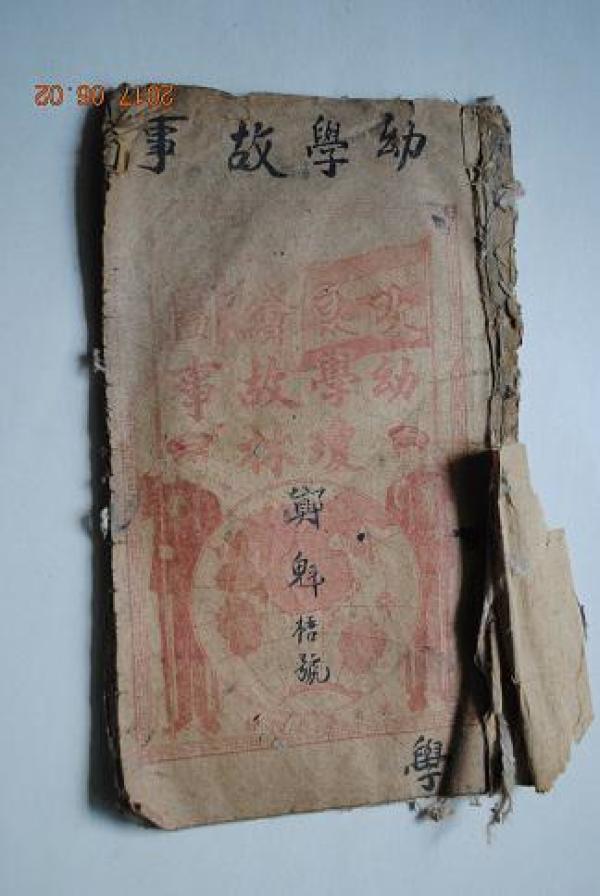 2017 06.02
幼學故事
改良繪圖
幼學故事
瓊林
鄭魁梧號
學